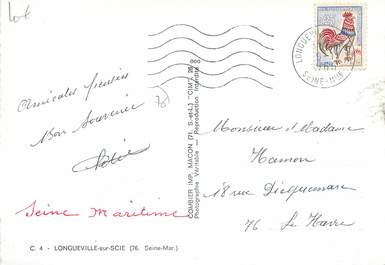 Amicales pensées
Bon Souvenir
Seine Maritime
C. 4 - LONGUEVILLE-sur-SCIE (76. Seine-Mar.)
COMBIER IMP. MACON (71, S.-et-L.) "CIM"
Photographie Véritable — Reproduction Interdite
LONGUEV
SEINE-MME
Monsieur et Madame
Hamon
18 rue Dicquemare
76 Le Havre